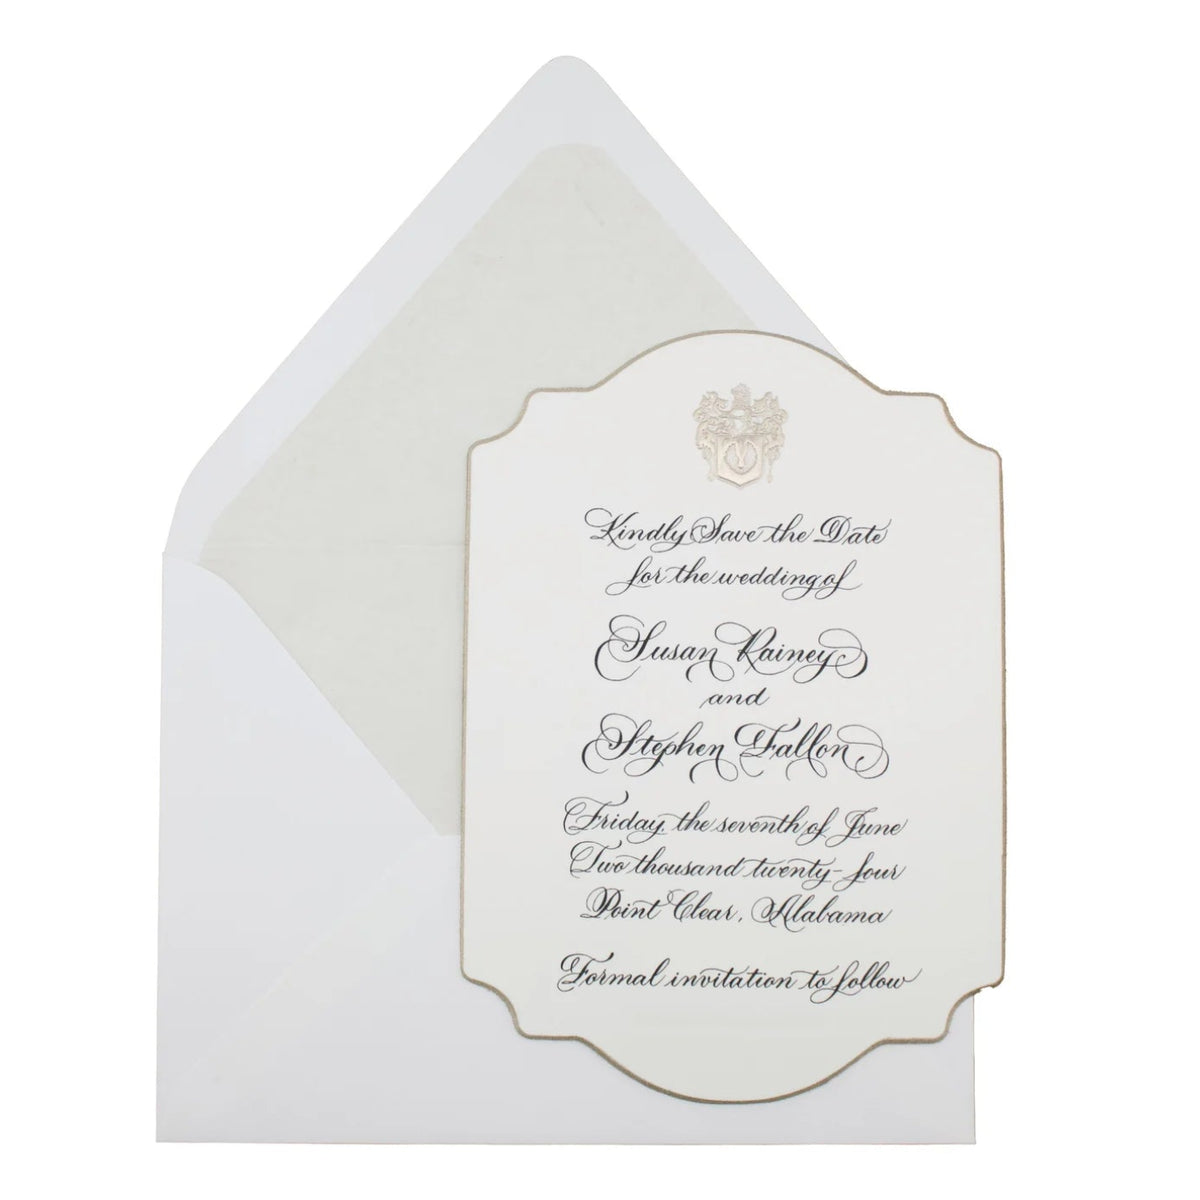 Kindly Save the Date
for the wedding of
Susan Rainey
and
Stephen Fallon
Friday, the seventh of June
Two thousand twenty-four
Point Clear, Alabama
Formal invitation to follow